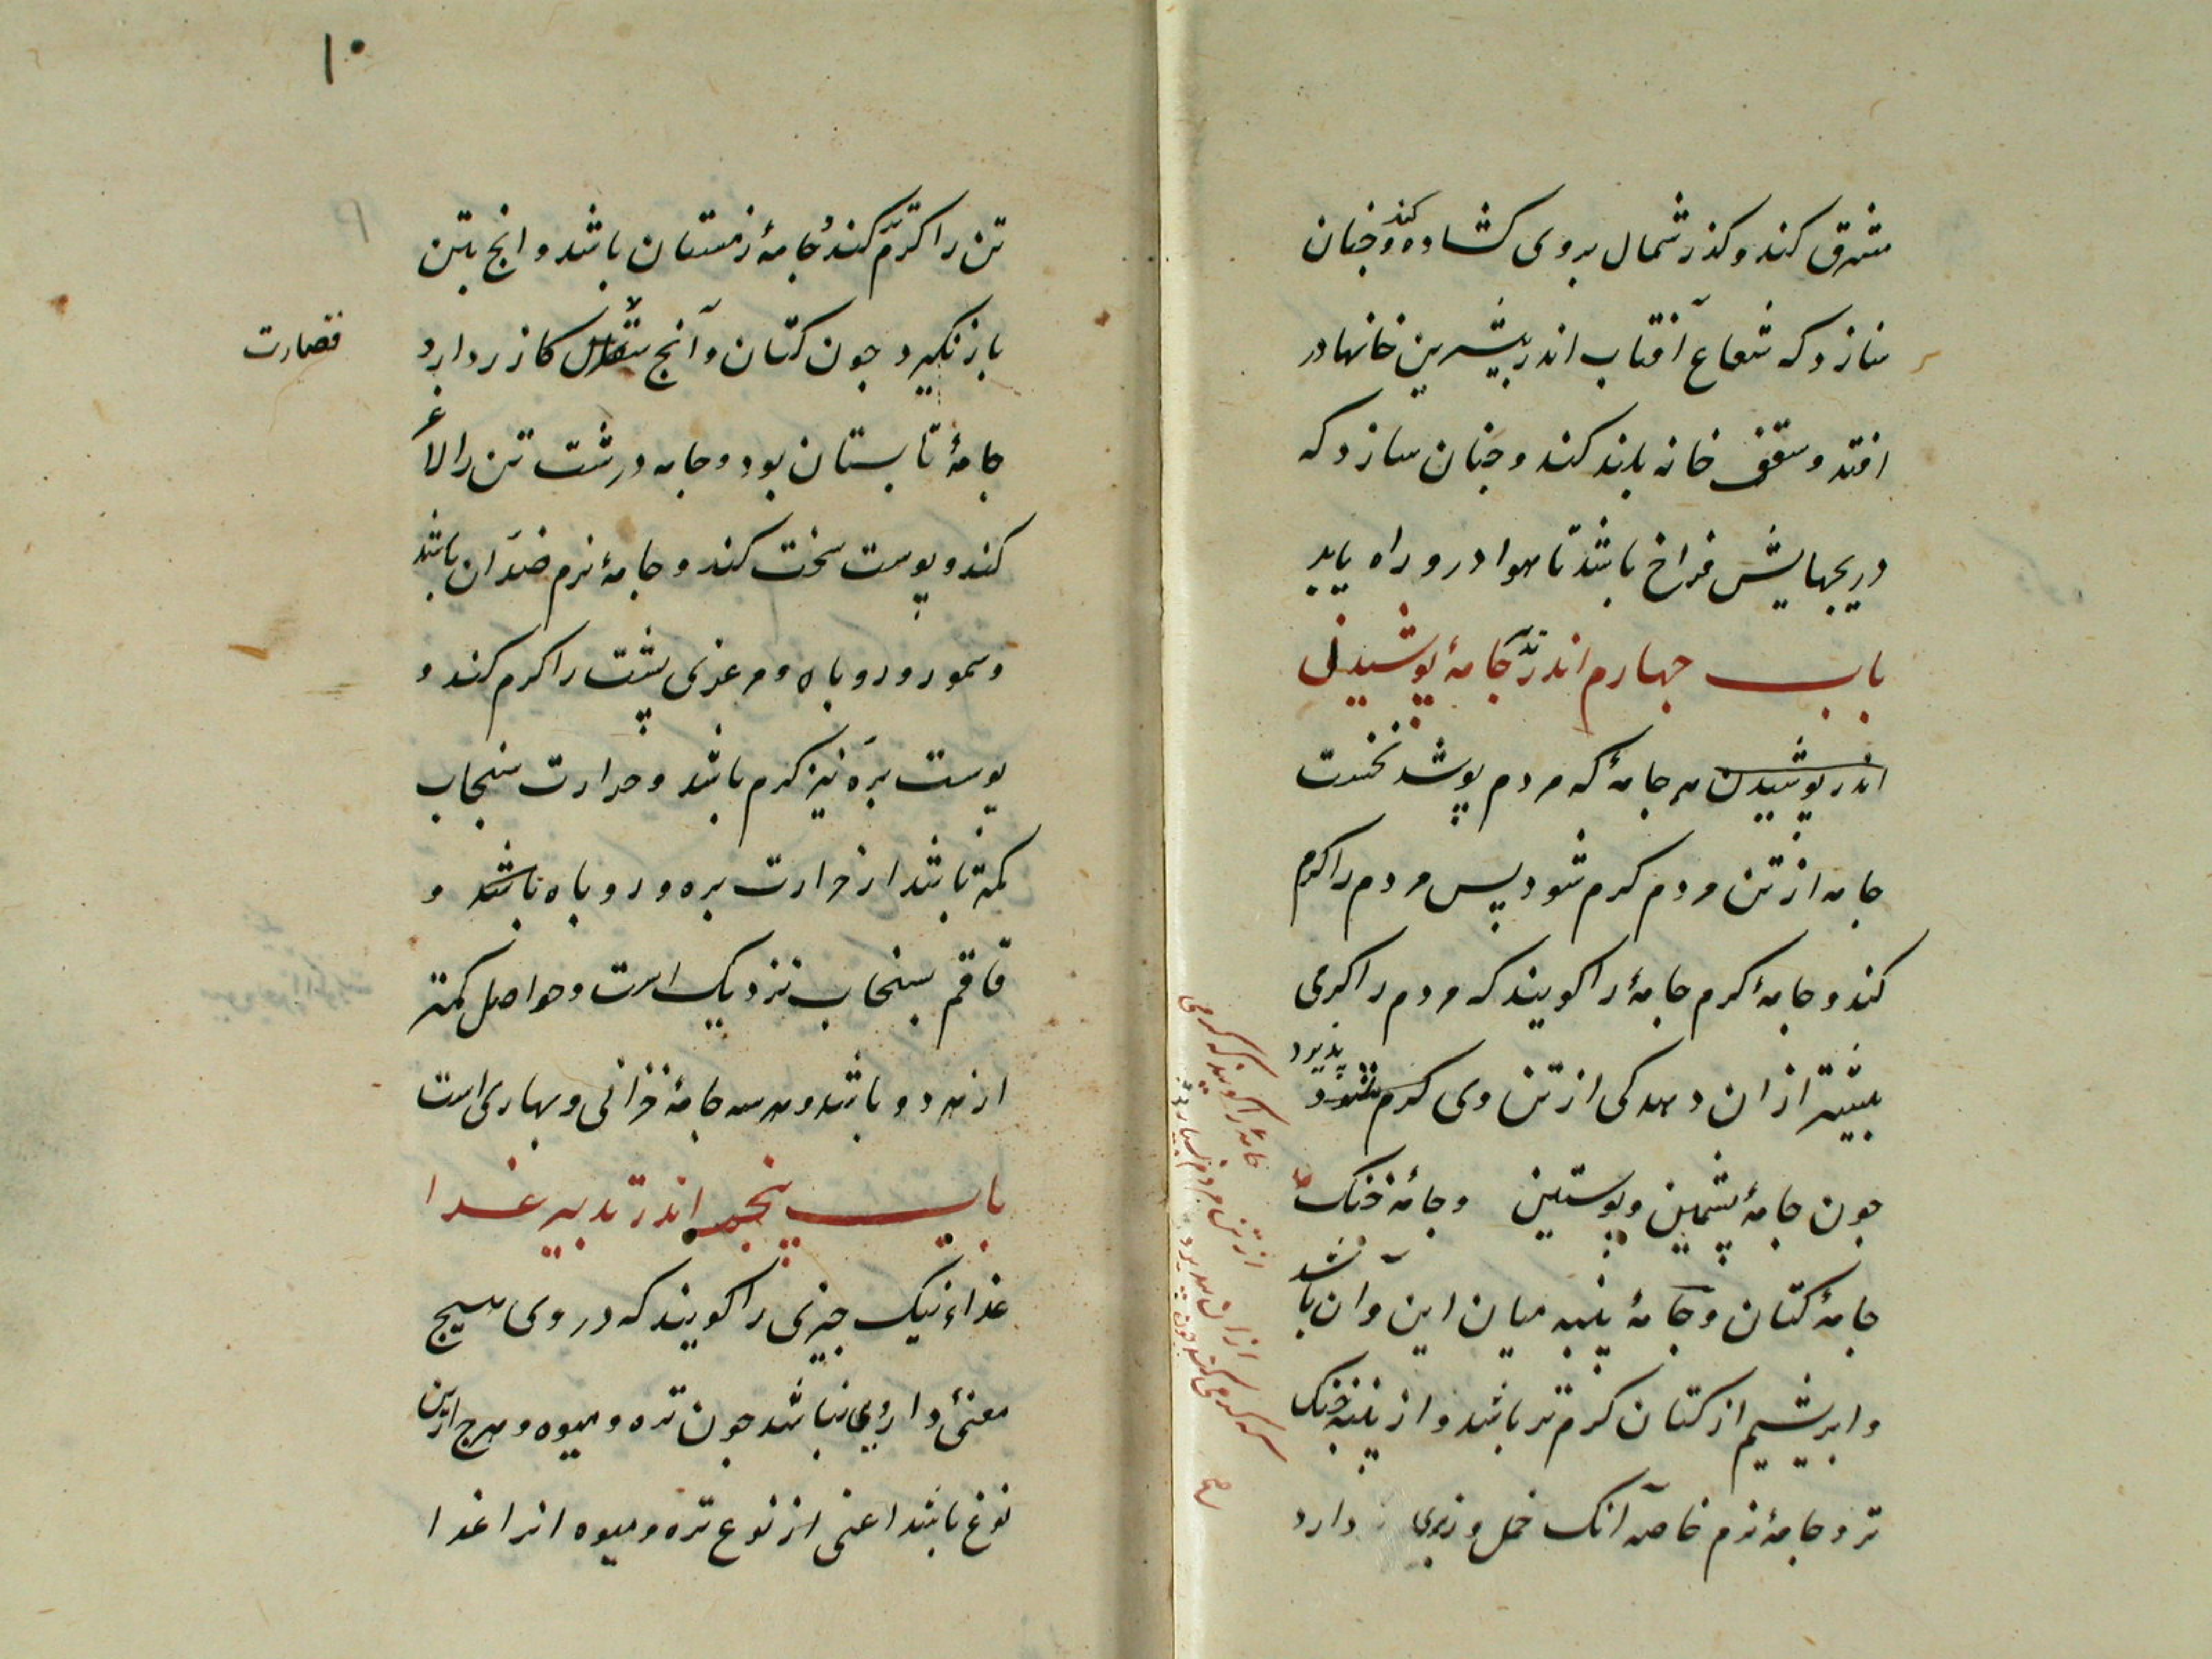 مشرق کند و کذر شمال بروی کشاده کند و جنان
سازد که شعاع آفتاب اندر بیشترین خانها در
افتد و سقف خانه بلند کند و جنان سازد که
دریجهایش فراخ باشد تا هوا درو راه یابد
باب جهارم اندر تدبیر جامۀ پوشیدنی
اندر پوشیدن هر جامۀ که مردم پوشد نخست
جامه از تن مردم کرم شود پس مردم را کرم
کند و جامۀ کرم جامۀ را کویند که مردم را کرمی
بیشتر از ان دهد کی از تن وی کرم شود پذیرد
جون جامۀ پشمین و پوستین و جامۀ خنک
جامۀ کتان و جامۀ پنبه میان این و آن باشد
و ابریشم از کتان کرم تر باشد و از پنبه خنک
تر و جامۀ نرم خاصه آنک خمل و زیری دارد
جامۀ را کویند که کرمی
از تن مردم بسیار
از ان پذیرد
۱۰
تن را کرم کند و جامۀ زمستان باشد و انج بتن
باز نکیرد جون کتان و آنج صقال کازر دارد
قصارت
جامۀ تابستان بود و جامه درشت تن را لاغر
کند و پوست سخت کند و جامۀ نرم ضد ان باشد
و سمور و روباه و مرعزی پشت را کرم کند و
پوست بره نیز کرم باشد و حرارت سنجاب
کمتر باشد از حرارت بره و روباه باشد و
قاقم بسنجاب نزدیک است و حواصل کمتر
از هر دو باشد و هر سه جامۀ خزانی و بهاری است
باب پنجم اندر تدبیر غذا
غذاء نیک جیزی را کویند که در وی هیج
معنئ داروی نباشد جون تره و میوه و هرج ازین
نوع باشد اعنی از نوع تره و میوه انرا غذا